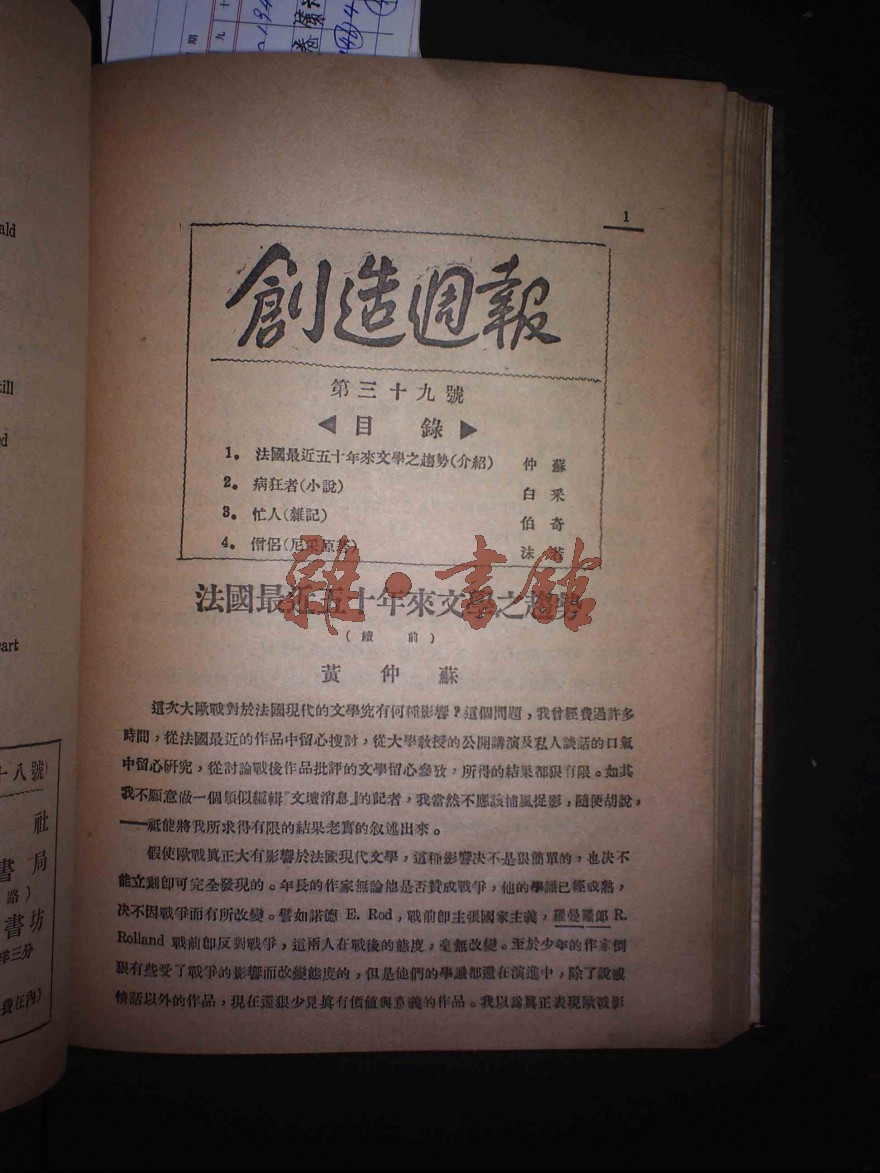 1
創造週報
第三十九號
◀目錄▶
1。 法國最近五十年來文學之趨勢(介紹) 仲蘇
2。 病狂者(小說) 白采
3。 忙人(雜記) 伯奇
4。 僧侶(尼采原著) 沫若
雜·書館
法國最近五十年來文學之趨勢
(續前)
黃仲蘇
這次大歐戰對於法國現代的文學究有何種影響?這個問題,我曾經費過許多
時間,從法國最近的作品中留心搜討,從大學教授的公開講演及私人談話的口氣
中留心研究,從討論戰後作品批評的文學留心參攷,所得的結果都狠有限。如其
我不願意做一個類似編輯『文壇消息』的記者,我當然不應該捕風捉影,隨便胡說,
——祗能將我所求得有限的結果老實的叙述出來。
假使歐戰眞正大有影響於法國現代文學,這種影響决不是狠簡單的,也决不
能立刻卽可完全發現的。年長的作家無論他是否贊成戰爭,他的學識已經成熟,
决不因戰爭而有所改變。譬如諾德 E. Rod,戰前卽主張國家主義,羅曼羅郎 R.
Rolland 戰前卽反對戰爭,這兩人在戰後的態度,毫無改變。至於少年的作家倒
狠有些受了戰爭的影響而改變態度的,但是他們的學識都還在演進中,除了說
情話以外的作品,現在還狠少見眞有價值與意義的作品。我以爲眞正表現歐戰影
ald
till
d
art
十八號)
社
書局
路)
書坊
洋三分
費在內)